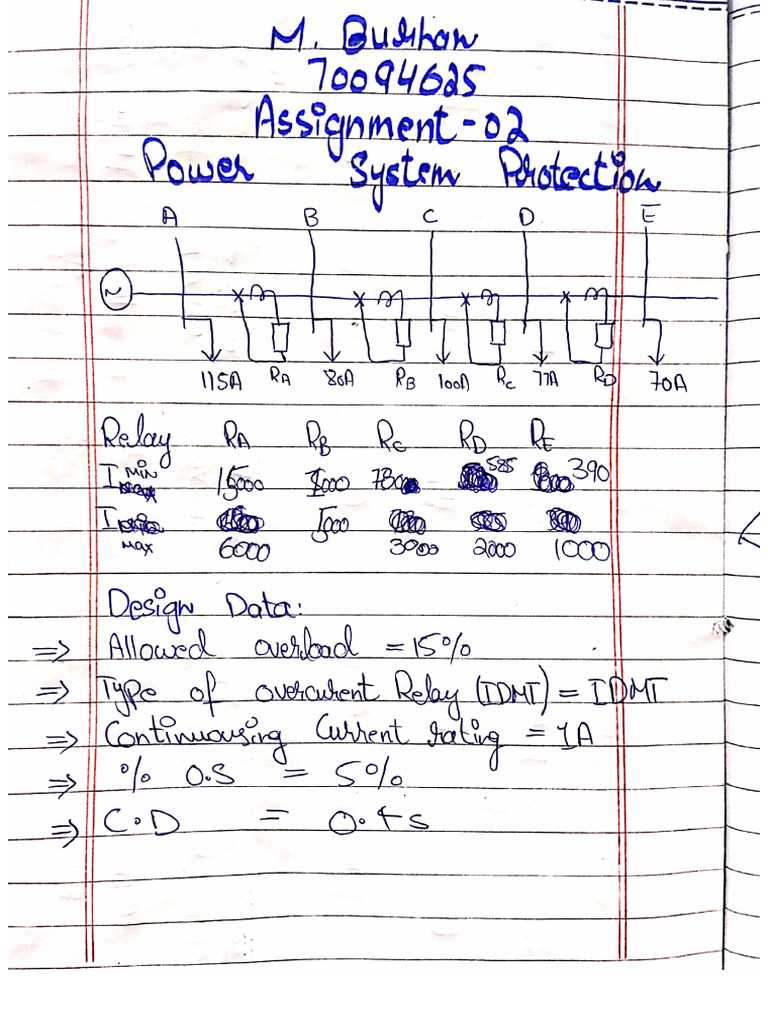 M. Burhan
70094625
Assignment-02
Power System Protection
A B C D E
~
115A RA 80A RB 100A RC 77A RD 70A
Relay RA RB RC RD RE
I MIN 15000 1000 780 585 390
I
MAX 6000 5000 3000 2000 1000
Design Data:
⇒ Allowed overload = 15%
⇒ Type of overcurent Relay (IDMT) = IDMT
⇒ Continuousing Current rating = 1A
⇒ % O.S = 5%
⇒ C.D = 0.4s